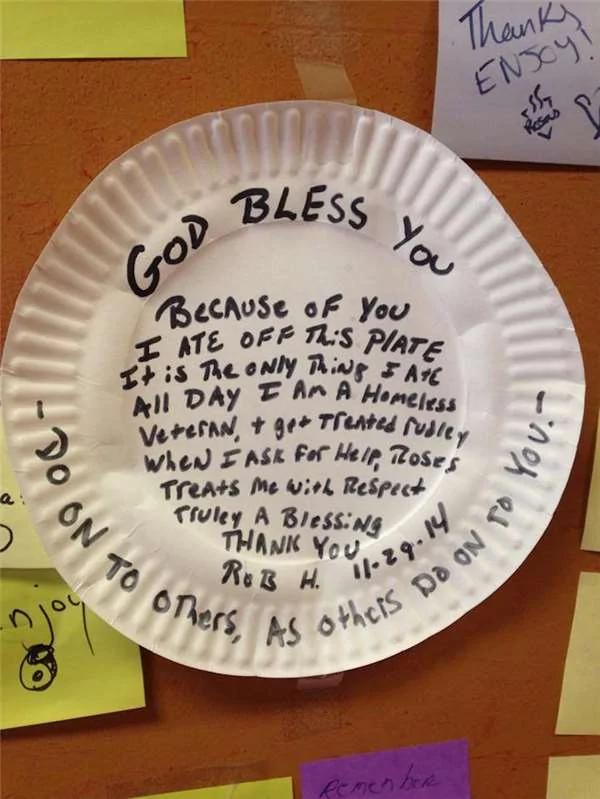 Thanks
ENJOY!
Rosa's
GOD BLESS YOU
BECAUSE OF YOU
I ATE OFF THIS PLATE
It is The ONLY Thing I ATE
All DAY I AM A Homeless
VeterAN, + get TreAted rudley
WHeN I ASK For Help, ROSES
TreAts Me with RespecT
Truley A BlessiNg
THANK YOU
ROB H. 11-29-14
- DO ON TO OTHers, AS OtheIS DO ON TO YOU. -
njoy
Remember